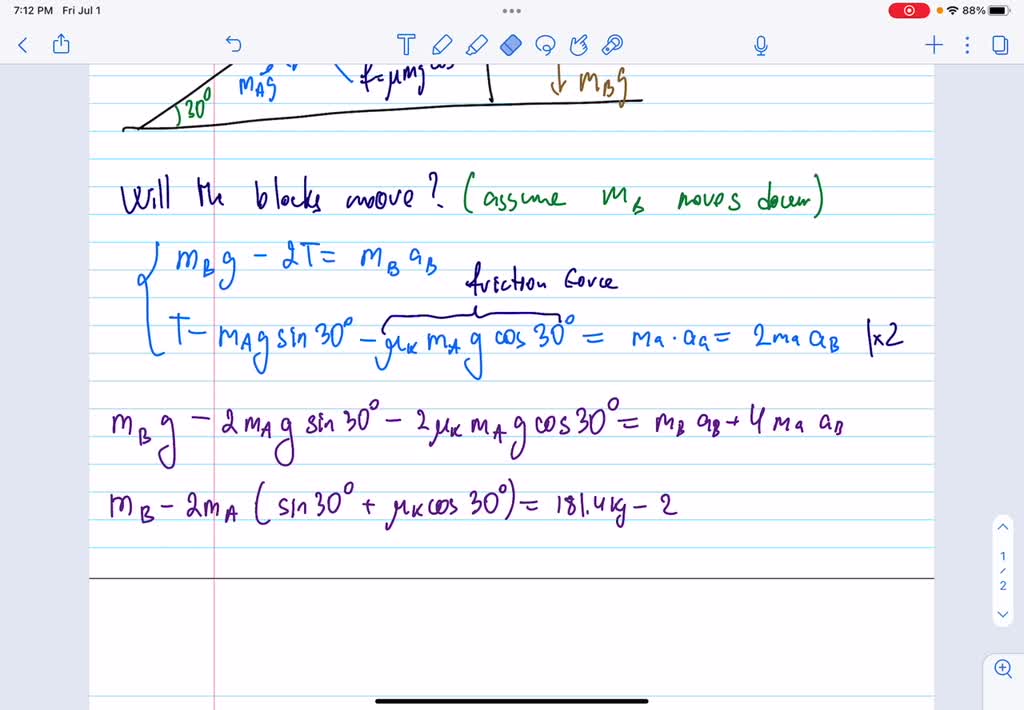 7:12 PM Fri Jul 1
88%
T
m_A g
f=μmg cos
↓ m_B g
30°
Will the blocks move? (assume m_B moves down)
m_B g - 2T = m_B a_B
friction force
T - m_A g sin 30° - μ_K m_A g cos 30° = m_A · a_A = 2 m_A a_B |×2
m_B g - 2 m_A g sin 30° - 2 μ_K m_A g cos 30° = m_B a_B + 4 m_A a_B
m_B - 2 m_A (sin 30° + μ_K cos 30°) = 181.4 kg - 2
1
/
2